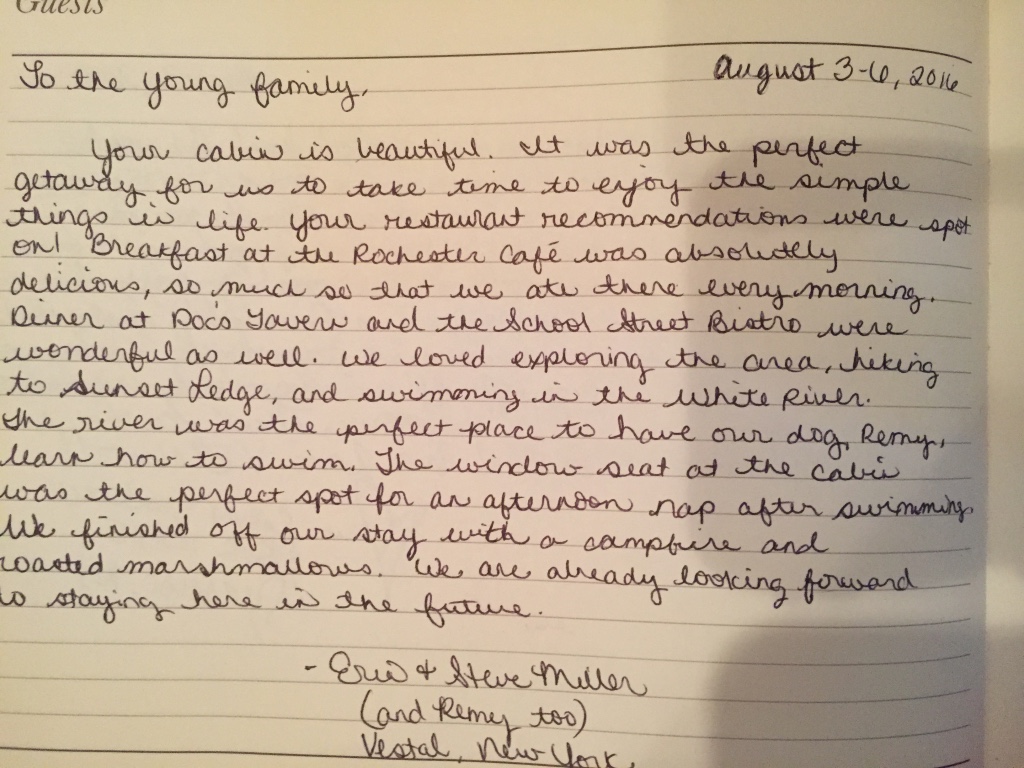 Guests
To the Young family,
August 3-6, 2016
Your cabin is beautiful. It was the perfect
getaway for us to take time to enjoy the simple
things in life. Your restaurant recommendations were spot
on! Breakfast at the Rochester Café was absolutely
delicious, so much so that we ate there every morning.
Dinner at Doc's Tavern and the School Street Bistro were
wonderful as well. We loved exploring the area, hiking
to Sunset Ledge, and swimming in the White River.
The river was the perfect place to have our dog, Remy,
learn how to swim. The window seat at the cabin
was the perfect spot for an afternoon nap after swimming.
We finished off our stay with a campfire and
roasted marshmallows. We are already looking forward
to staying here in the future.
- Erin & Steve Miller
(and Remy too)
Vestal, New York